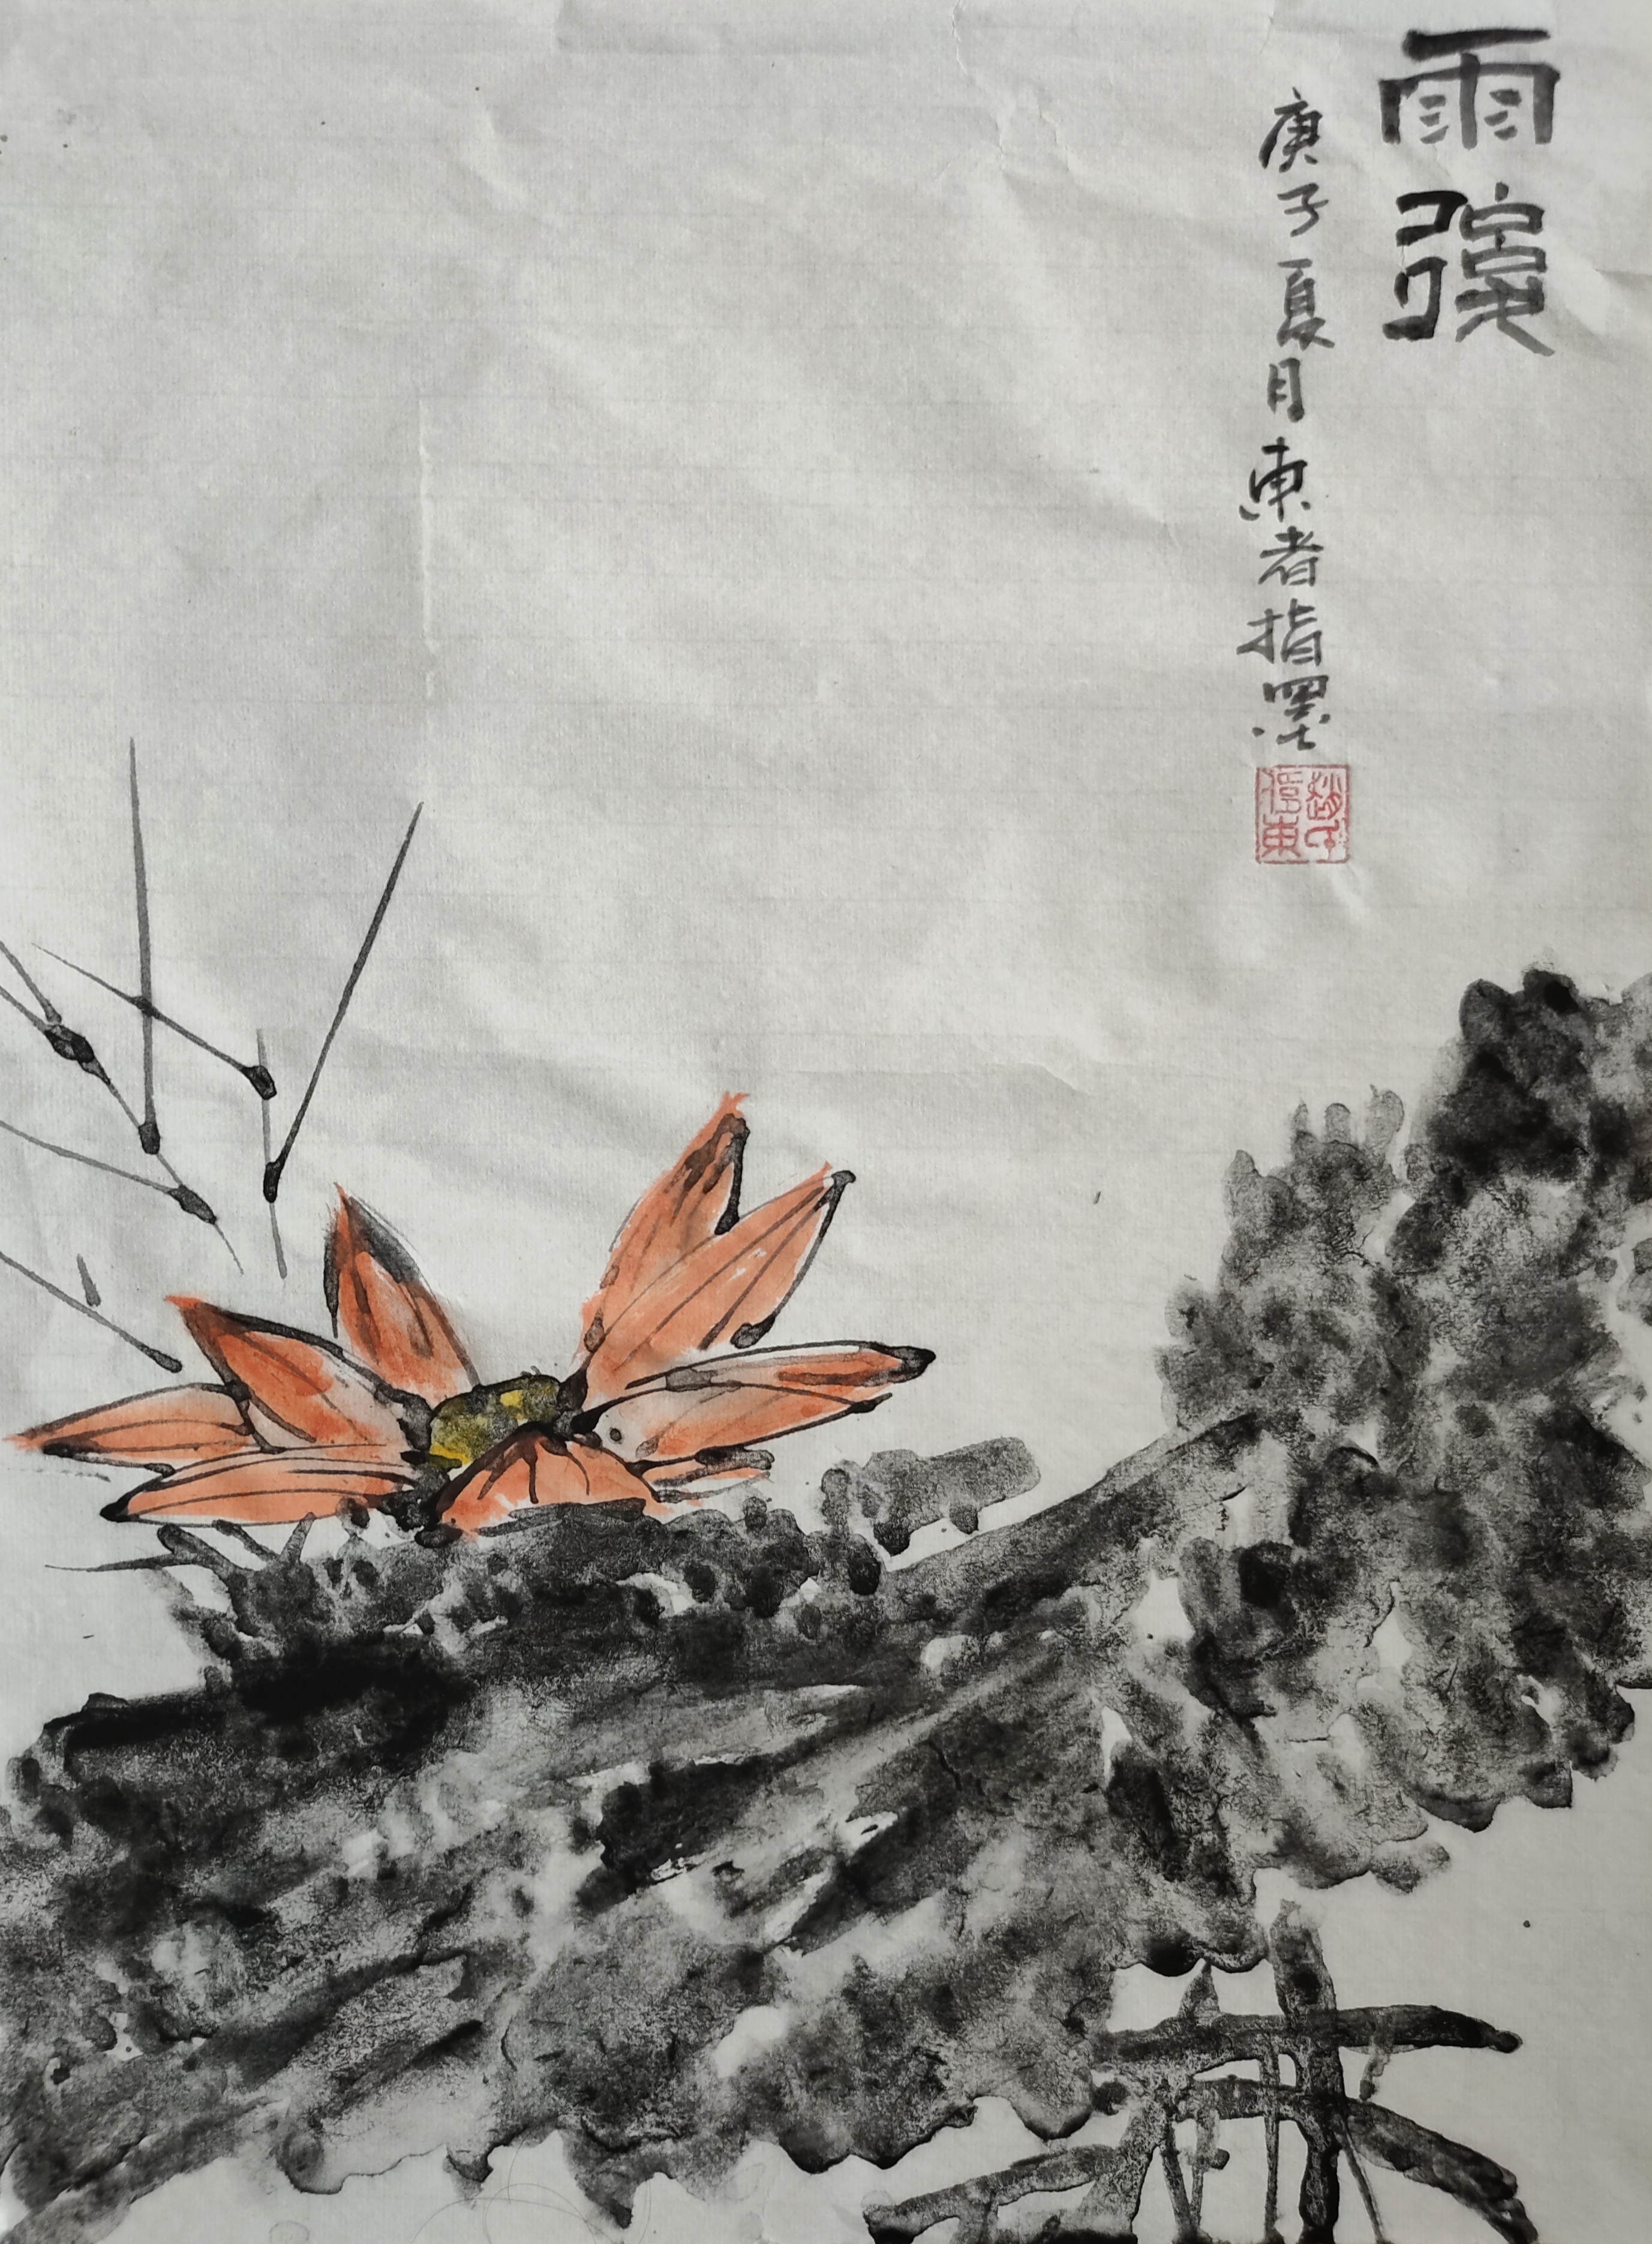 雨
庚子夏月東者指墨